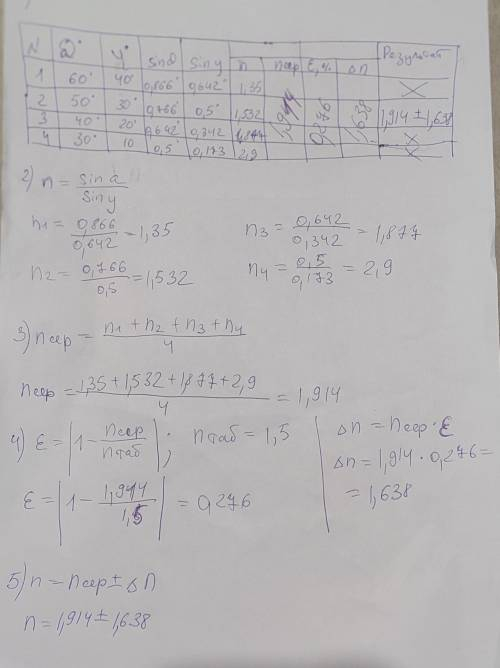 N α° γ° sinα sinγ n nсер ε,% Δn Результат
1 60° 40° 0,866 0,642 1,35 1,914 0,276 1,638 X
2 50° 30° 0,766 0,5° 1,532 1,914 ± 1,638
3 40° 20° 0,642 0,342 1,877 X
4 30° 10 0,5 0,173 2,9 X
2) n = sin α / sin γ
n1 = 0,866 / 0,642 = 1,35
n3 = 0,642 / 0,342 = 1,877
n2 = 0,766 / 0,5 = 1,532
n4 = 0,5 / 0,173 = 2,9
3) nсер = n1 + n2 + n3 + n4 / 4
nсер = 1,35 + 1,532 + 1,877 + 2,9 / 4 = 1,914
4) ε = |1 - nсер / nтаб| ; nтаб = 1,5
Δn = nсер · ε
Δn = 1,914 · 0,276 =
= 1,638
ε = |1 - 1,914 / 1,5| = 0,276
5) n = nсер ± Δn
n = 1,914 ± 1,638